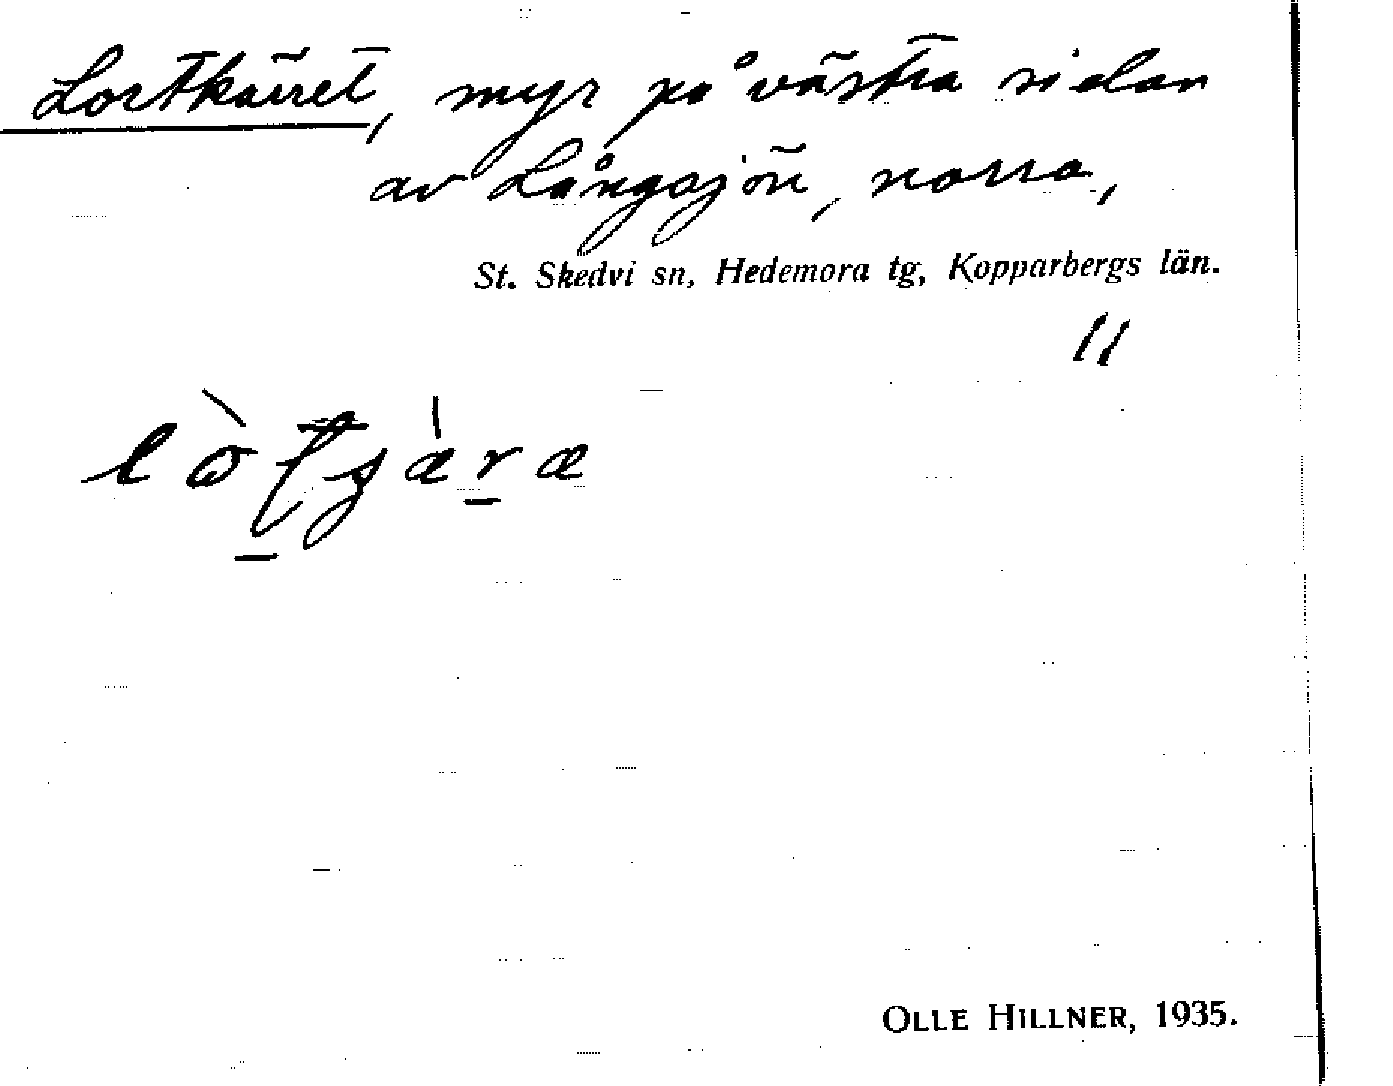 Lortkärret, myr på västra sidan
av Långsjön, norra,
St. Skedvi sn, Hedemora tg, Kopparbergs län.
OLLE HILLNER, 1935.